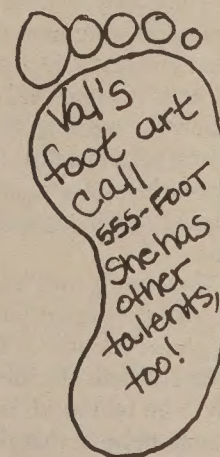 Val's
foot art
call
555-FOOT
She has
other
talents,
too!